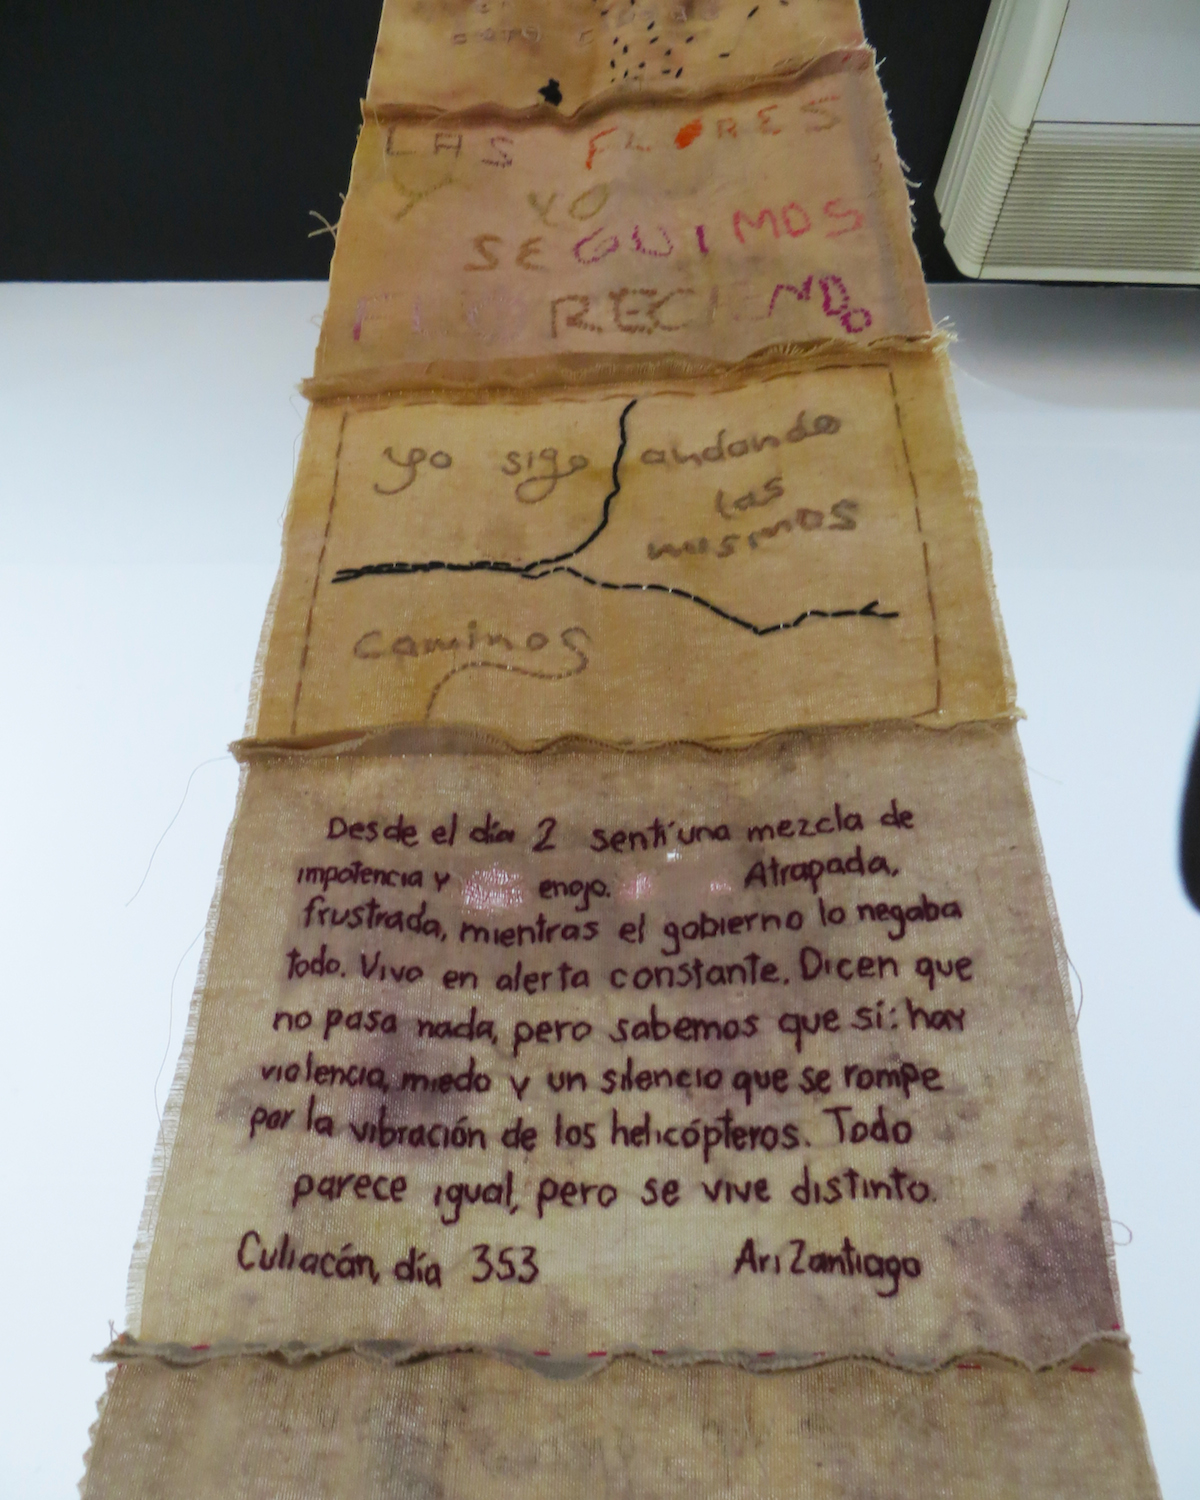 LAS FLORES
Y YO
SEGUIMOS
FLORECIENDO
yo sigo andando
las
mismos
caminos
Desde el día 2 sentí una mezcla de
impotencia y enojo. Atrapada,
frustrada, mientras el gobierno lo negaba
todo. Vivo en alerta constante. Dicen que
no pasa nada, pero sabemos que sí: hay
violencia, miedo y un silencio que se rompe
por la vibración de los helicópteros. Todo
parece igual, pero se vive distinto.
Culiacán, día 353 Ari Zantiago